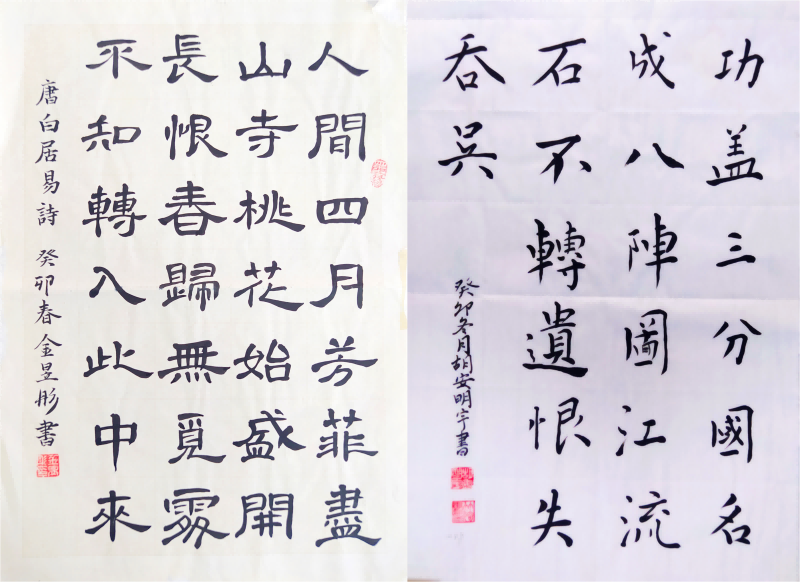 人間四月芳菲盡
山寺桃花始盛開
長恨春歸無覓處
不知轉入此中來
唐白居易詩 癸卯春金昱彤書
功盖三分國名
成八陣圖江流
石不轉遺恨失
吞吴
癸卯冬月胡安明宇書